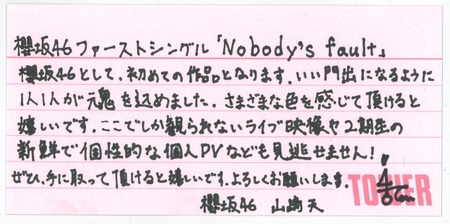 櫻坂46ファーストシングル「Nobody's fault」
櫻坂46として、初めての作品となります。いい門出になるように
1人1人が魂を込めました。さまざまな色を感じて頂けると
嬉しいです。ここでしか観られないライブ映像や2期生の
新鮮で個性的な個人PVなども見逃せません!
ぜひ、手に取って頂けると嬉しいです。よろしくお願いします。
TOWER
櫻坂46 山﨑天